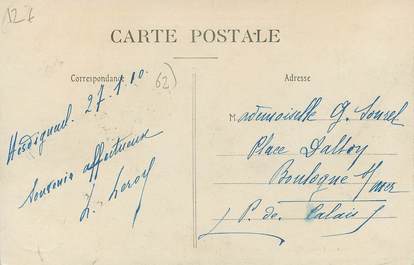 126
CARTE POSTALE
Correspondance
62)
Adresse
Hesdigneul. 27.1.10.
Souvenir affectueux
L. Leroy
Mademoiselle G. Sourel
Place Dalton
Boulogne s/mer
P. de Calais